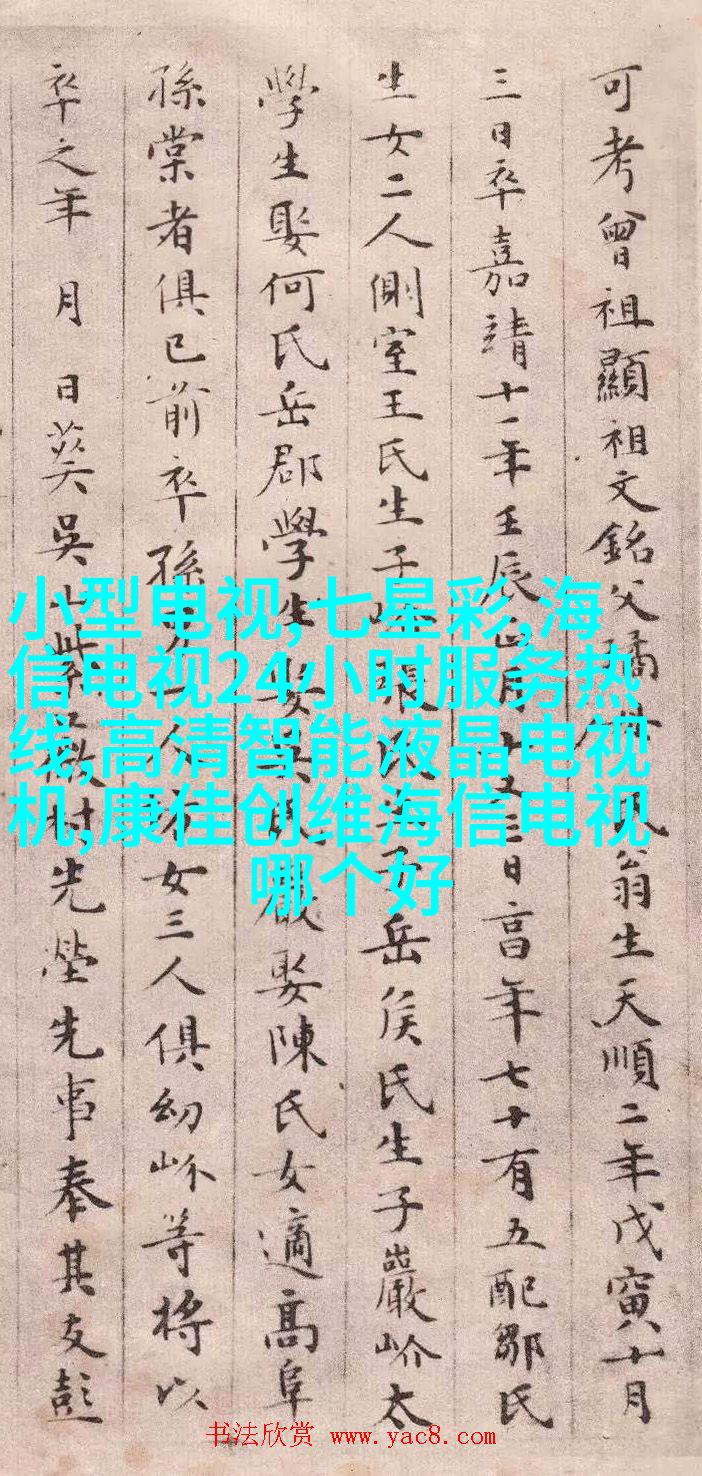 可考曾祖顯祖文銘父翁生天順二年戊寅十月
三日卒嘉靖十一年壬辰正月十又三日享年七十有五配鄒氏
生女二人側室王氏生子張氏生子岳侯氏生子巖岕太
學生娶何氏岳郡學生娶吳氏巖娶陳氏女適高阜
孫棠者俱已前卒孫人孫女三人俱幼岕等將以
卒之年 月 日葬吳山紫薇村先塋先事奉其友彭
小型电视,七星彩,海
信电视24小时服务热
线,高清智能液晶电视
机,康佳创维海信电视
哪个好
书法欣赏 www.yac8.com